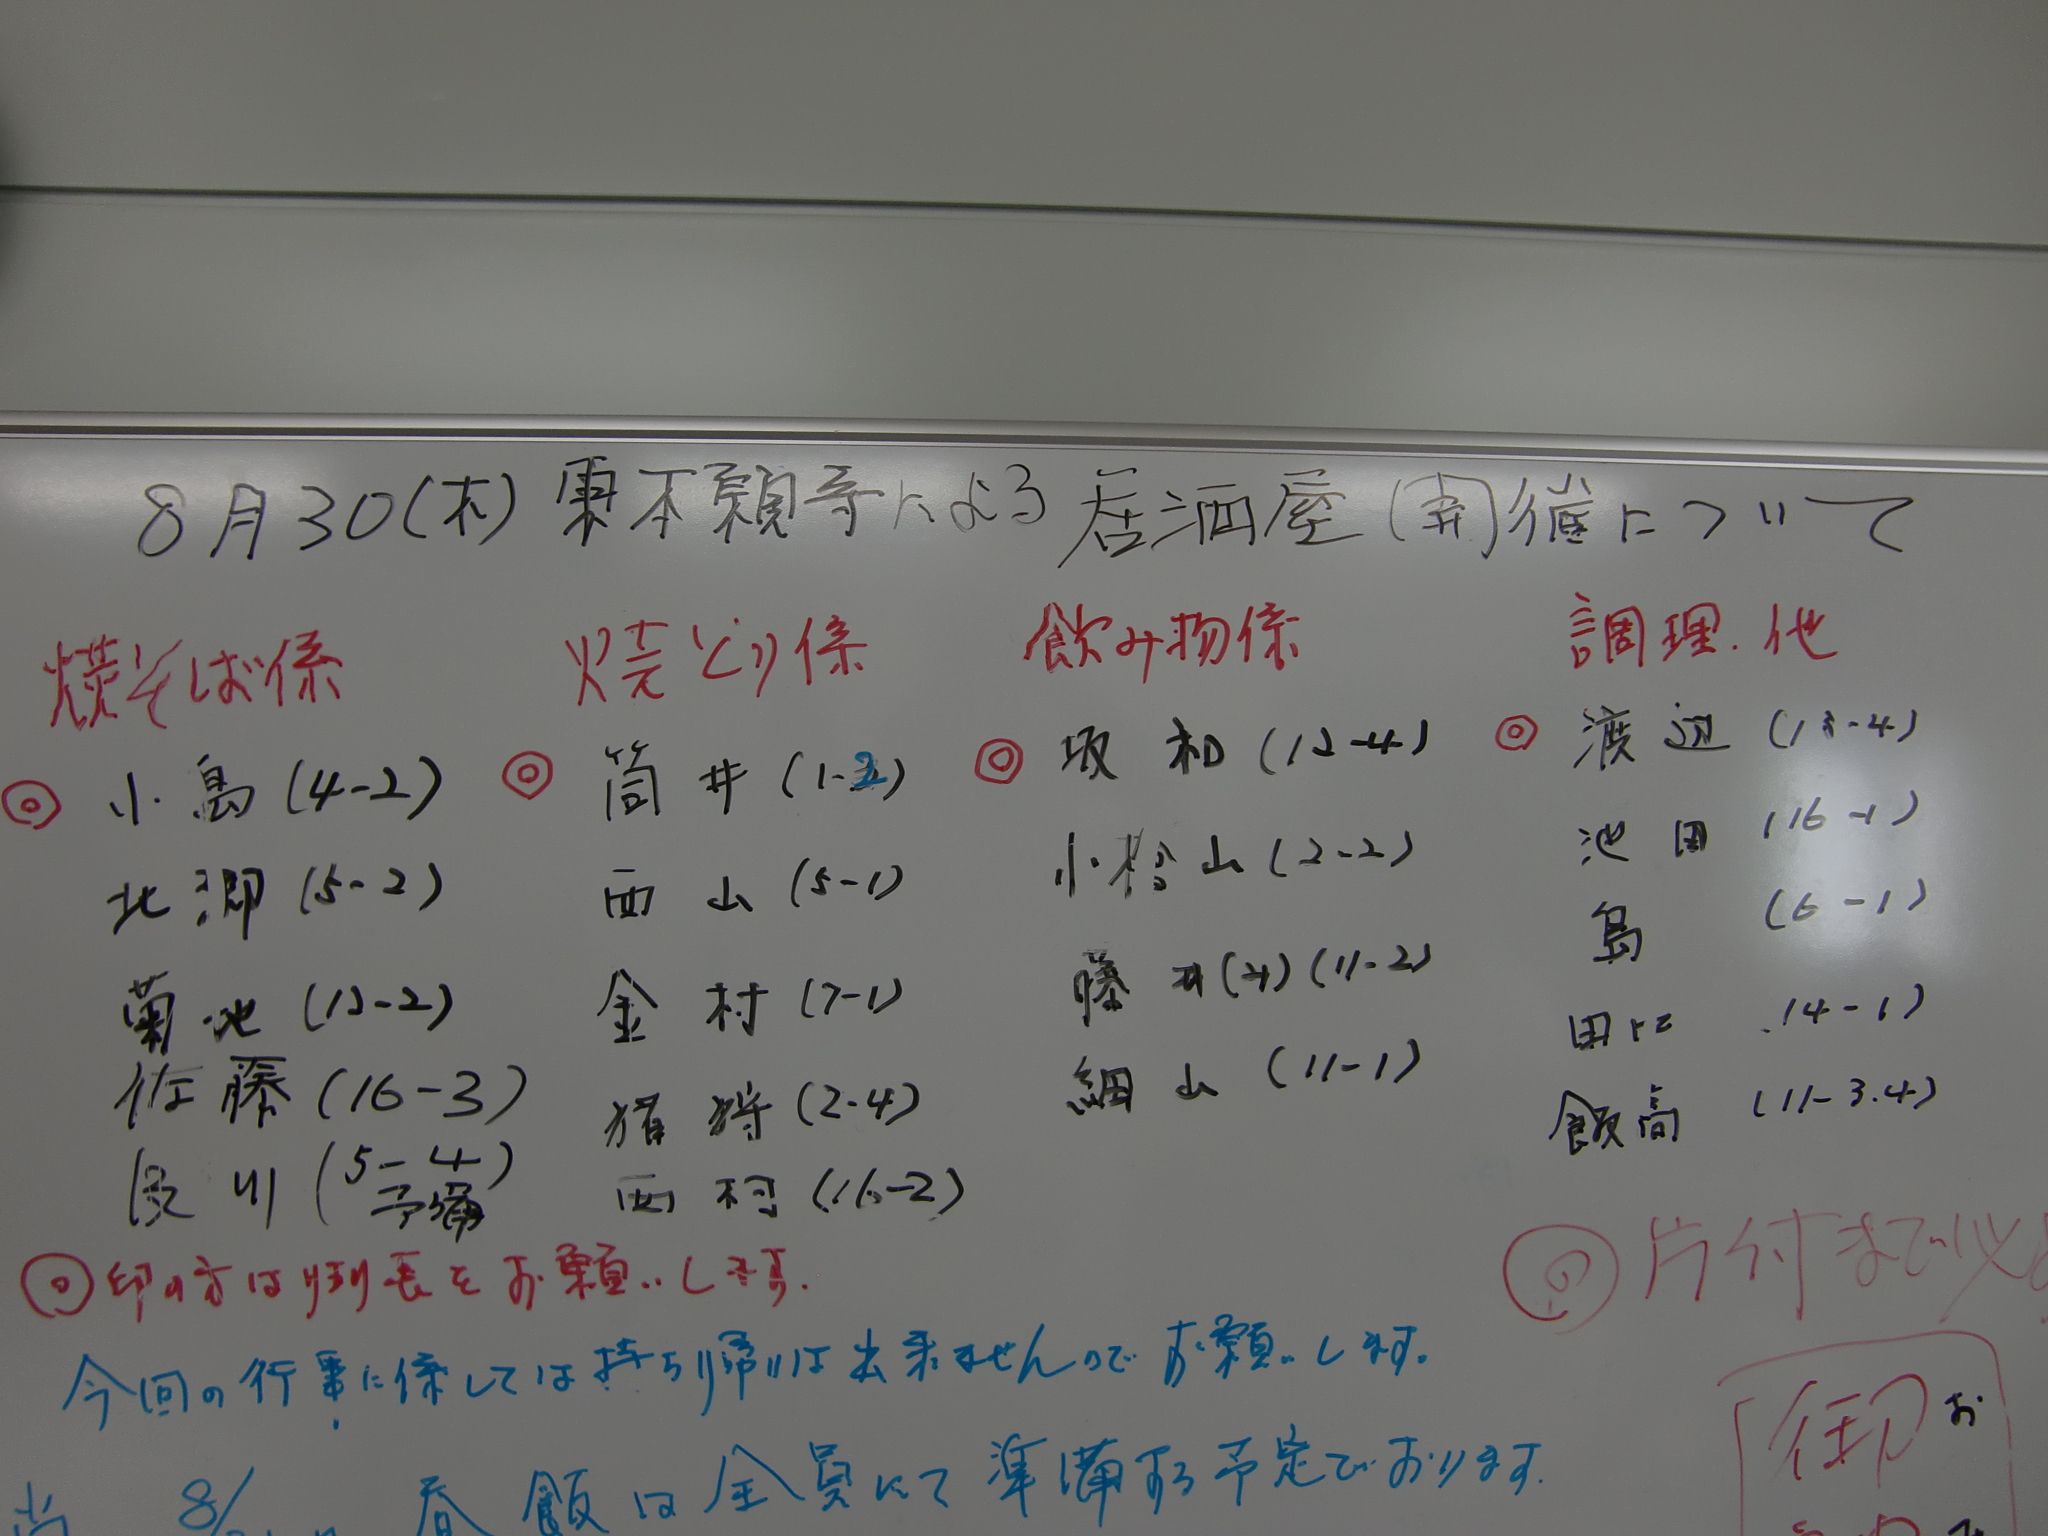 8月30(木)東本願寺による居酒屋(開)催について
焼そば係
◎ 小島(4-2)
北郷(5-2)
菊地(12-2)
佐藤(16-3)
良川(5-4)
予備
焼とり係
◎ 筒井(1-2)
西山(5-1)
金村(7-1)
猪狩(2-4)
西村(16-2)
飲み物係
◎ 坂和(12-4)
小松山(2-2)
藤井(サ)(11-2)
細山(11-1)
調理.他
◎ 渡辺(13-4)
池田(16-1)
島(6-1)
田口(4-1)
飯高(11-3.4)
◎印の方は班長をお願いします.
◎片付まで必
今回の行事に係しては持ち帰りは出来ませんのでお願いします.
御 お
尚 8/ 昼飯は全員にて準備する予定でおります.